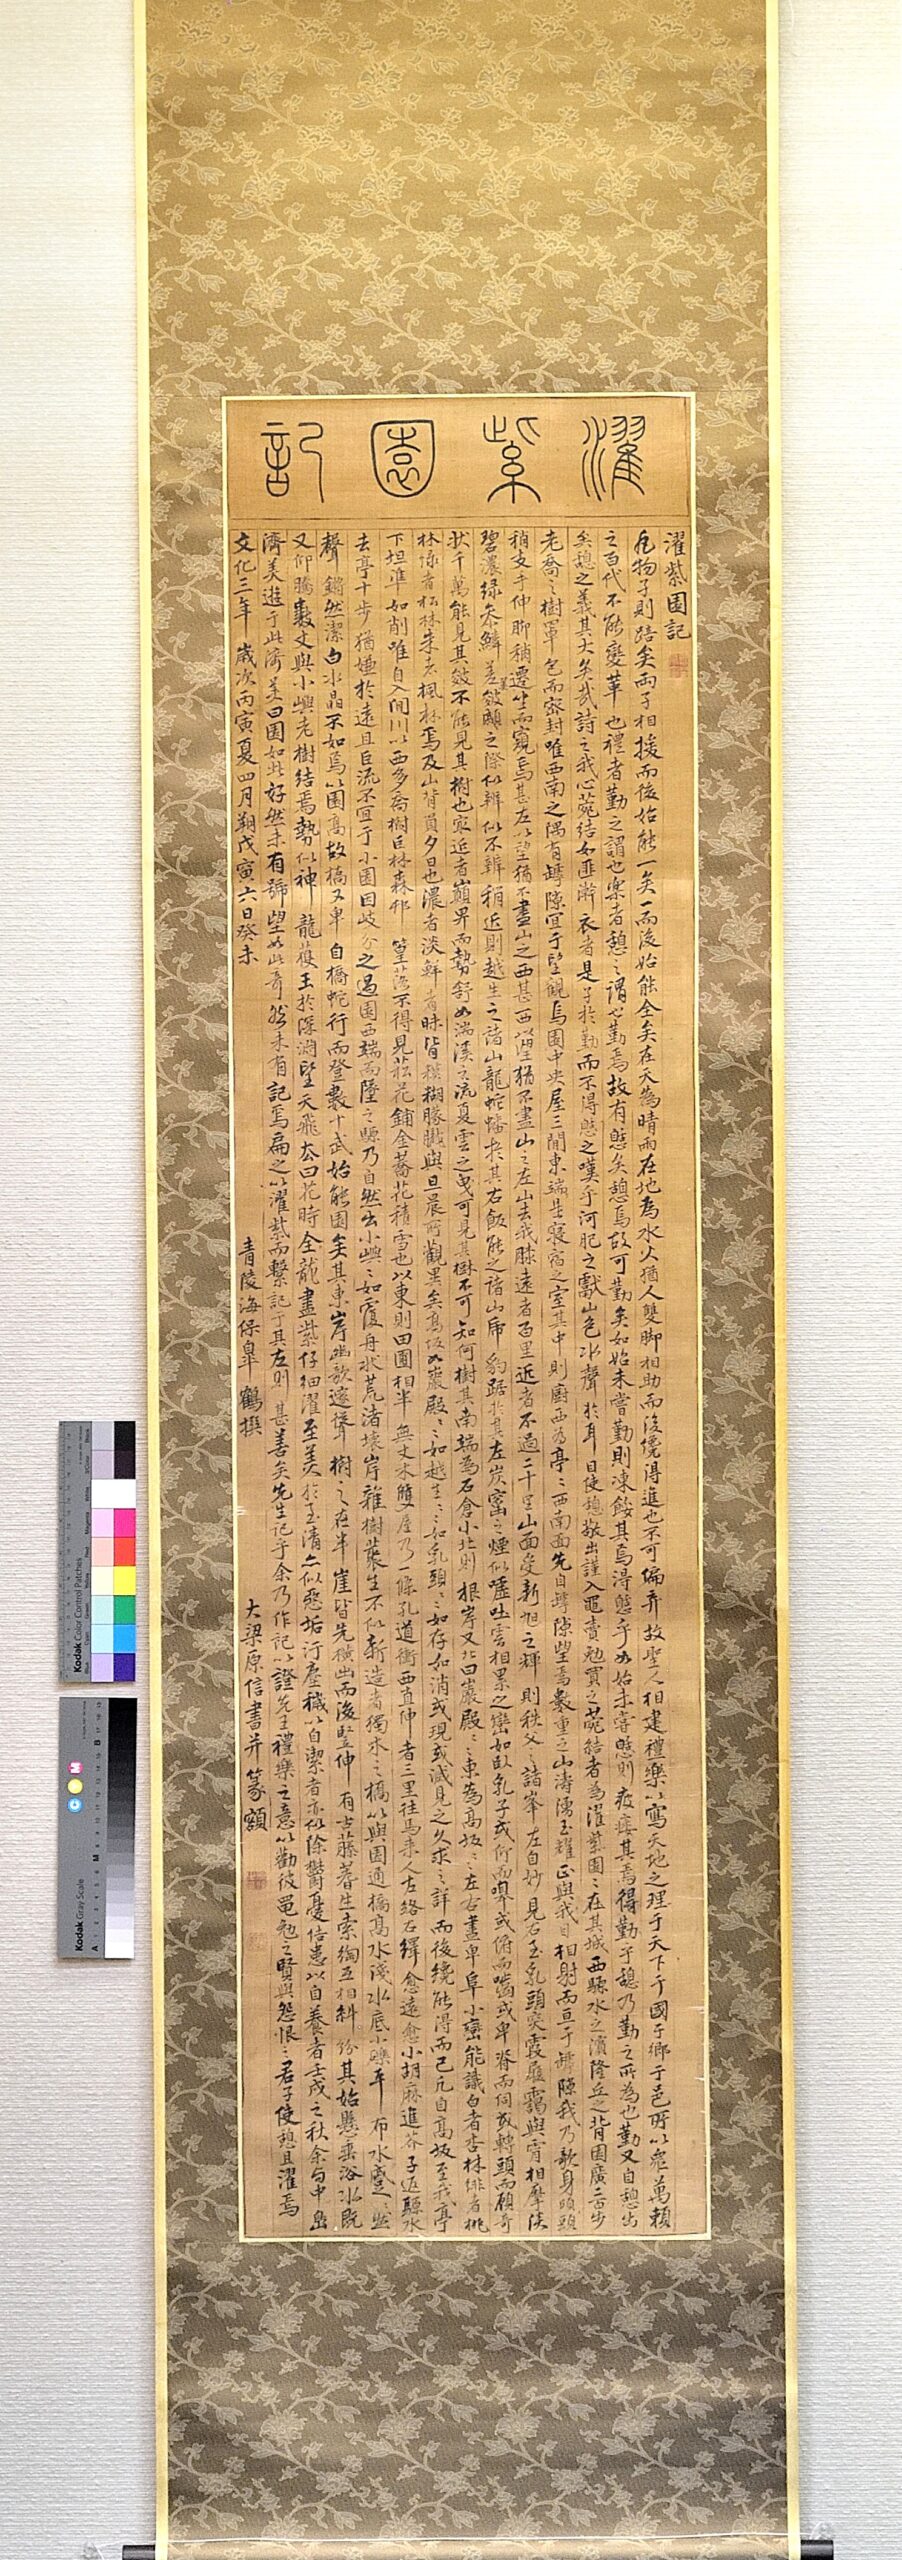 濯紫園記
濯紫園記
凡物孑則踣矣両孑相援而後始能一矣一而後始能全矣在天為晴雨在地為水火猶人雙脚相助而後纔得進也不可偏弃故聖人相建禮樂以寫天地之理于天下于國于鄉于邑所以衆萬賴
之百代不能變革也禮者勤之謂也楽者憩之謂也勤焉故有憩矣憩焉故可勤矣如始未嘗勤則凍餒其焉得憩乎如始未嘗憩則疲其焉得勤乎憩乃勤之所為也勤又自憩出
矣憩之義其大矣哉詩之我心菀結如匪澣衣者是乎於勤而不得憩之嘆乎河肥之山色水聲於耳目使憩敬出謹入黽勉買之菀結者為濯紫園々在其城西驟水之濱隆丘之背園廣二百步
老喬之樹罩包而密封唯西南之隅有罅隙宜于望觀焉園中央屋三間東端是寢宿之室其中則廚西為亭々西南面先自罅隙望焉數重之山濤湧玉耀正與我目相射而亘于罅隙我乃欹身頭
稍支手伸脚稍遷坐而窺焉甚左以望猶不盡山之西甚西以望猶不盡山之左山去我膝遠者百里近者不過二十里山面受新旭之輝則秩父之諸峯左自妙見右玉乳頭突霞靄與霄相摩淡
碧濃緑参鱗差皺皴之際似辨似不辨稍近則越生之諸山龍蛇蟠於其右飯能之諸山席豹踞於其左炭窰之煙似嘘吐雲相累之巒如臥乳子或仰而嗥或俯而嚙或卑脊而伺或轉頭而顧奇
狀千萬能見其皴不能見其樹也最近者巔昇而勢舒如湍溪之流夏雲之曳可見其樹不可知何樹其南端為石倉小北則根岸又北曰巖殿々東為高坂々左右盡卑阜小巒能識白者杏林緋者桃
林緑者松林朱者楓林焉及山背負夕日也濃者淡鮮者昧皆模糊朦朧與旦晨所觀異矣高坂如巖殿々如越生々如乳頭々如存如消或現或滅見之久求之詳而後纔能得而已凡自高坂至我亭
下坦準如削唯自入間川以西多喬樹巨林森邨篁落不得見菘花鋪金蕎花積雪也以東則田圃相半無丈木雙屋乃一條孔道衝西直伸者三里往馬来人左絡右繹愈遠愈小胡麻進芥子返驟水
去亭十步猶嫌於遠且巨流不宜于小園因岐分之過園西端而墜之驟乃自然出小嶼々如覆舟状荒渚壊岸雜樹叢生不似新造者獨木之橋以與園通橋高水淺水底小礫平布水蹙々然
聲鏘然潔白水晶不如焉以園高故橋又卑自橋蛇行而登數十武始能園矣其東岸幽歌遠樹之在半崖皆先橫出而後竪伸有古藤著生索綯互相糾紛其始懸垂浴水既
又仰騰數丈與小嶼老樹結焉勢似神龍獲王於深淵望天飛去曰花時全龍盡紫仔細濯至美於玉清亦似惡垢汚塵穢以自潔者亦似除鬱憂倍恚以自養者壬戌之秋余與中島
濟美遊于此濟美曰園如此好然未有號望如此奇然未有記焉扁之以濯紫而繫記于其左則甚善矣先生記乎余乃作記以證先王禮樂之意以勸彼黽勉之賢與怨恨之君子使憩且濯焉
文化三年歳次丙寅夏四月朔戊寅六日癸未　青陵海保皐鶴撰　大梁原信書并篆額